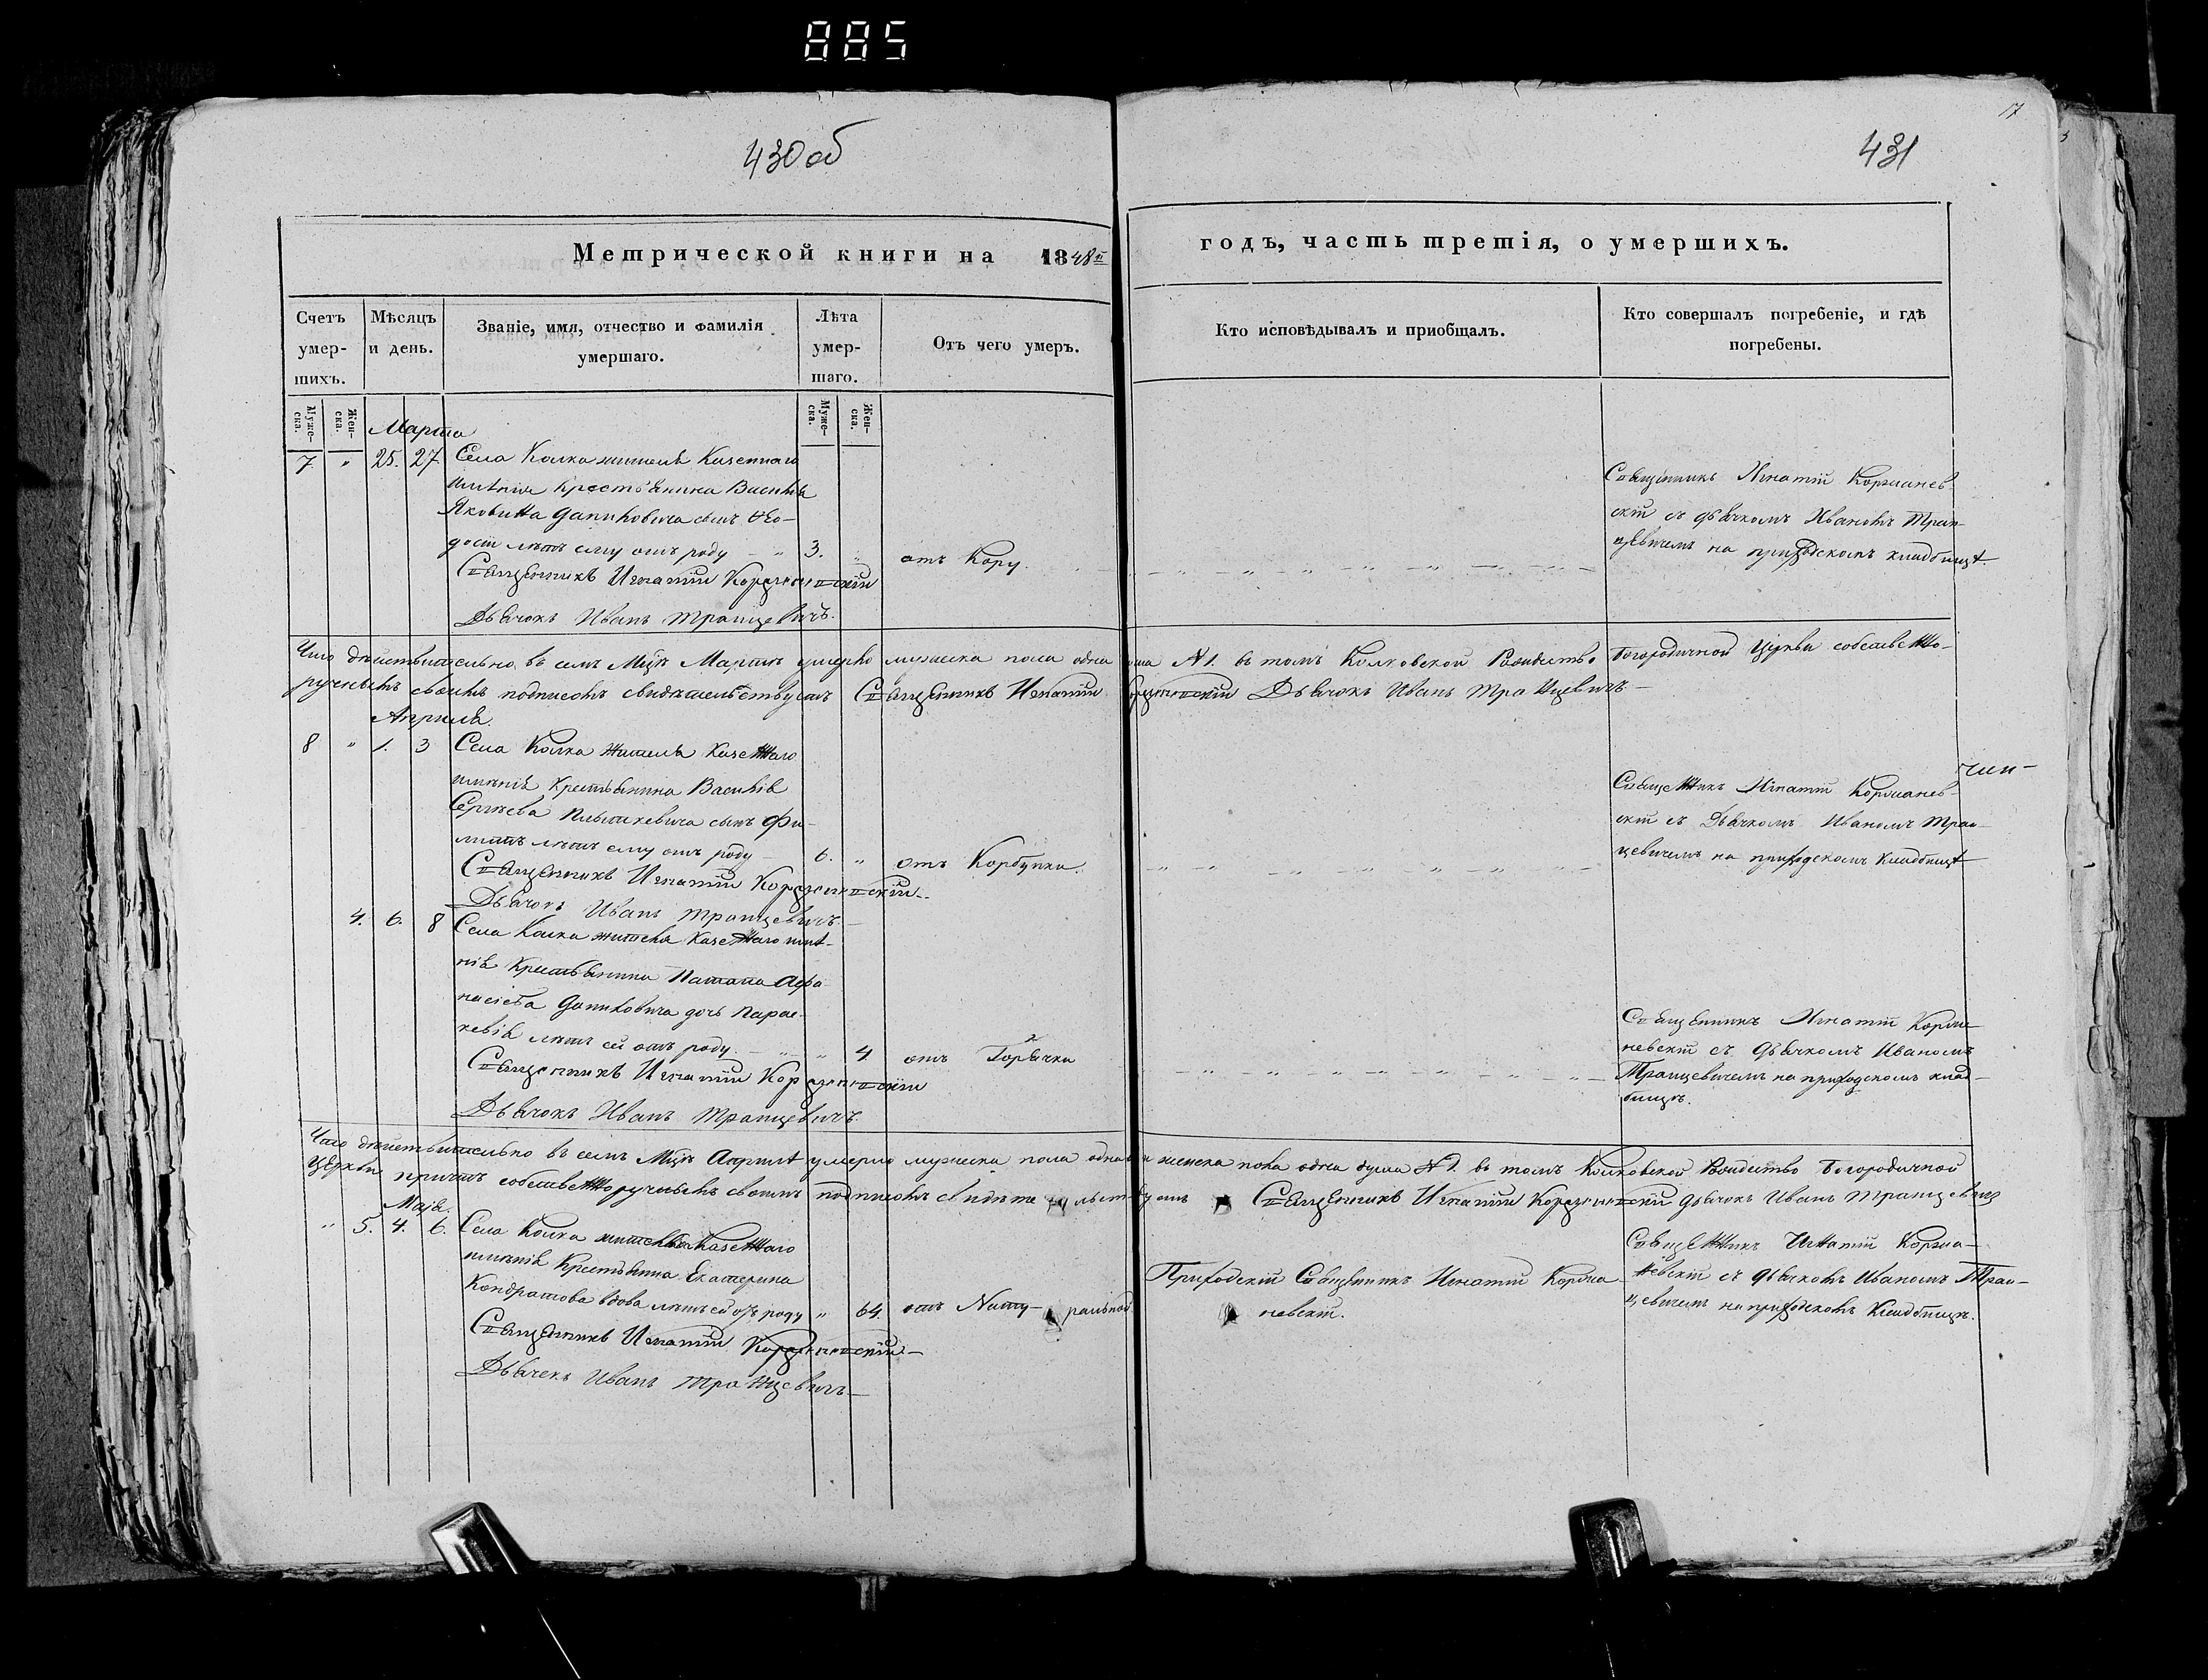 885
17
430 об
431
Метрической книги на 1848й годъ, часть третія, о умершихъ.
Счетъ умер-шихъ.
Мѣсяцъ и день.
Званіе, имя, отчество и фамилія умершаго.
Лѣта умер-шаго.
Отъ чего умеръ.
Кто исповѣдывалъ и приобщалъ.
Кто совершалъ погребеніе, и гдѣ погребены.
Муже-ска.
Жен-ска.
Муже-ска.
Жен-ска.
Марта
7 " 25. 27 Села Колка жителя Казеннаго
имѣнія крестьянина Василія
Яковина Даниловича сынъ Ѳео-
досій лѣтъ ему отъ роду " 3. "
отъ Кору.
Священникъ Игнатій Коржаневскій
Дьячокъ Иванъ Транцевичъ.
Священникъ Игнатій Коржанев-
скій съ дьячкомъ Иваномъ Тран-
цевичемъ на приходскомъ кладбищѣ.
Что дѣйствительно въ семъ Мцѣ Мартѣ умерло мужеска пола одна душа №1. въ томъ Колковской Рождество Богородичной Церкви собственно-
ручнымъ своимъ подписомъ свидѣтельствуемъ Священникъ Игнатій Коржаневскій Дьячокъ Иванъ Транцевичъ.
Апрѣля
8 " 1. 3 Села Колка жителя Казеннаго
имѣнія Крестьянина Василія
Сергѣева сынъ Фи-
липпъ лѣтъ ему отъ роду 6. "
отъ Корбунка.
Священникъ Игнатій Коржаневскій
Дьячокъ Иванъ Транцевичъ.
чин-
Священникъ Игнатій Коржанев-
скій съ Дьячкомъ Иваномъ Тран-
цевичемъ на приходскомъ кладбищѣ
4. 6. 8 Села Колка жителя Казеннаго имѣ-
нія Крестьянина Патапа Афа-
насіева Даниловича дочь Парас-
кевія лѣтъ ей отъ роду " 4.
отъ Горячки
Священникъ Игнатій Коржаневскій
Дьячокъ Иванъ Транцевичъ.
Священникъ Игнатій Коржа-
невскій съ дьячкомъ Иваномъ
Транцевичемъ на приходскомъ клад-
бищѣ.
Что дѣйствительно въ семъ Мцѣ Априлѣ умерло мужеска пола одна и женска пола одна душа №1. въ томъ Колковской Рождество Богородичной
Церкви причтъ собственноручнымъ своимъ подписомъ свидѣтельствуемъ Священникъ Игнатій Коржаневскій дьячокъ Иванъ Транцевичъ
Маія.
" 5. 4. 6. Села Колка жителька Казеннаго
имѣнія Крестьянка Екатерина
Кондратова вдова лѣтъ ей отъ роду " 64.
отъ Натуральной
Священникъ Игнатій Коржаневскій
Дьячекъ Иванъ Транцевичъ
Приходскій Священникъ Игнатій Коржа-
невскій.
Священникъ Игнатій Коржа-
невскій съ дьячкомъ Иваномъ Тран-
цевичемъ на приходскомъ Кладбищѣ.